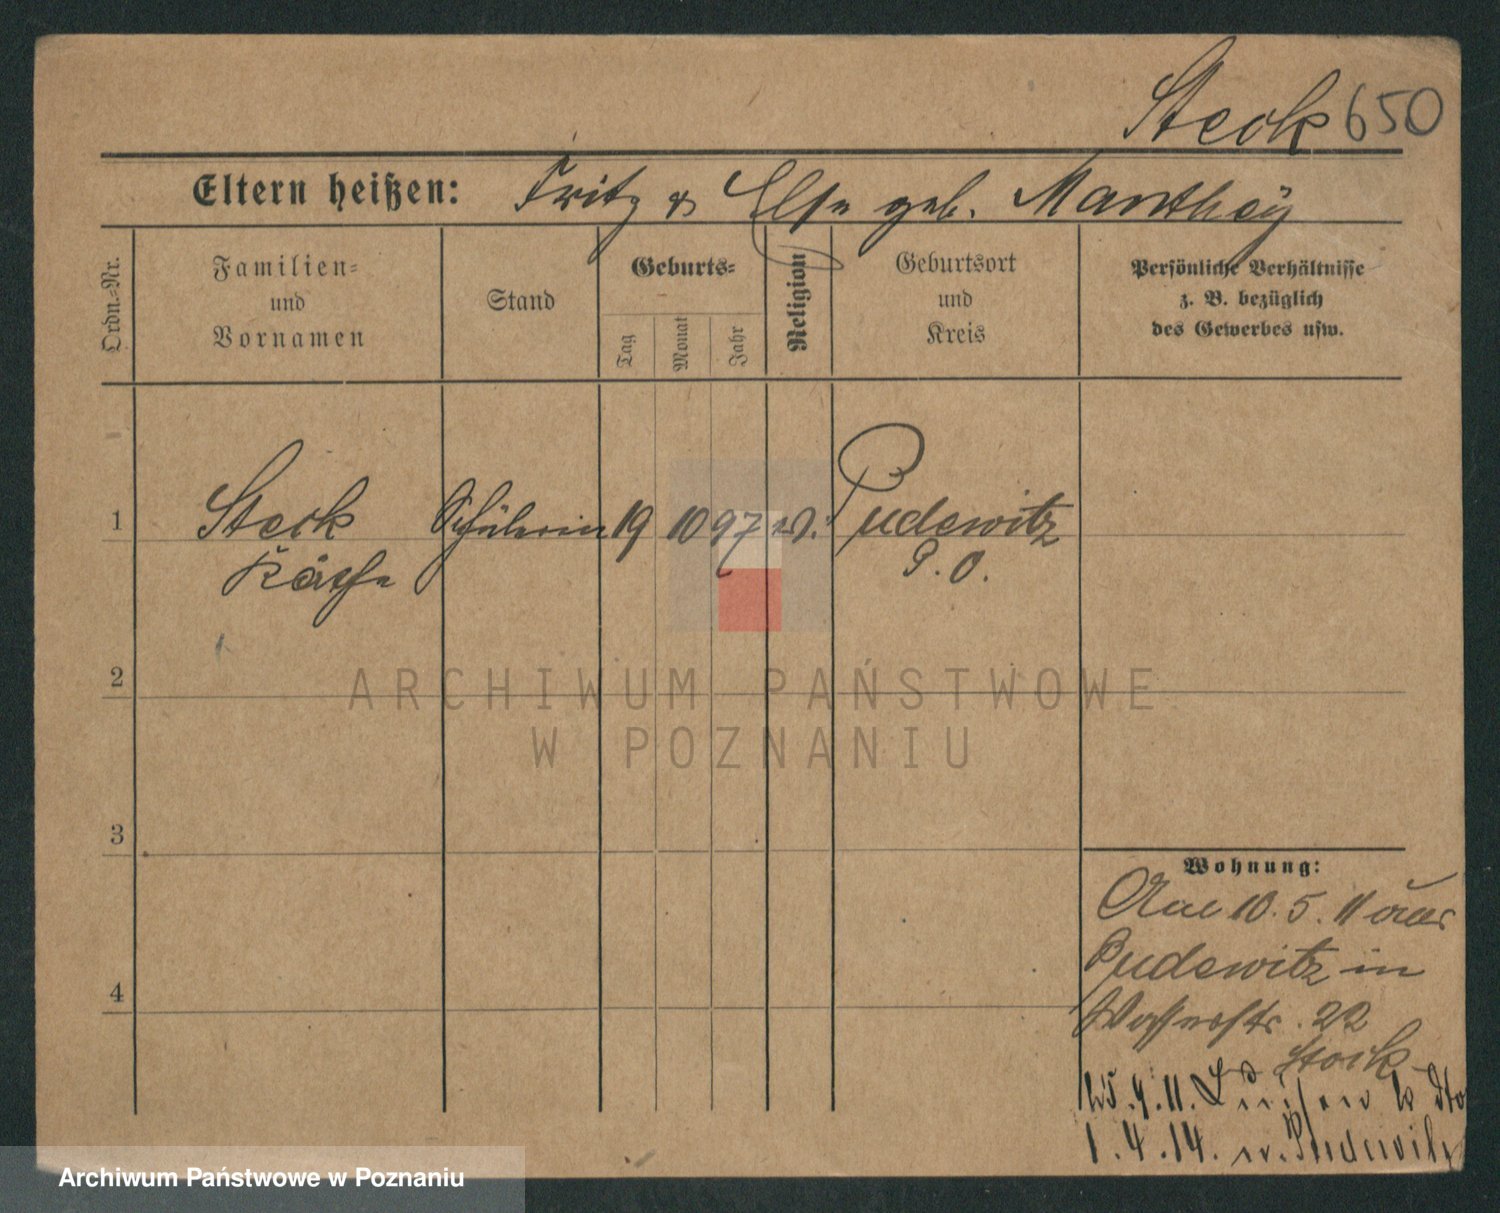 Steck 650
Eltern heißen: Fritz & Else geb. Manthey
Ordn.-Nr.
Familien-
und
Vornamen
Stand
Geburts-
Tag
Monat
Jahr
Religion
Geburtsort
und
Kreis
Persönliche Verhältnisse
z. B. bezüglich
des Gewerbes usw.
1 Steck Schülerin 19 10 97 Pudewitz
Käthe P. O.
2
ARCHIWUM PAŃSTWOWE
W POZNANIU
3
4
Wohnung:
10. 5. 11 aus
Pudewitz in
Wasserstr. 22
Steck
4. 11.
1. 4. 14. n. Pudewitz
Archiwum Państwowe w Poznaniu